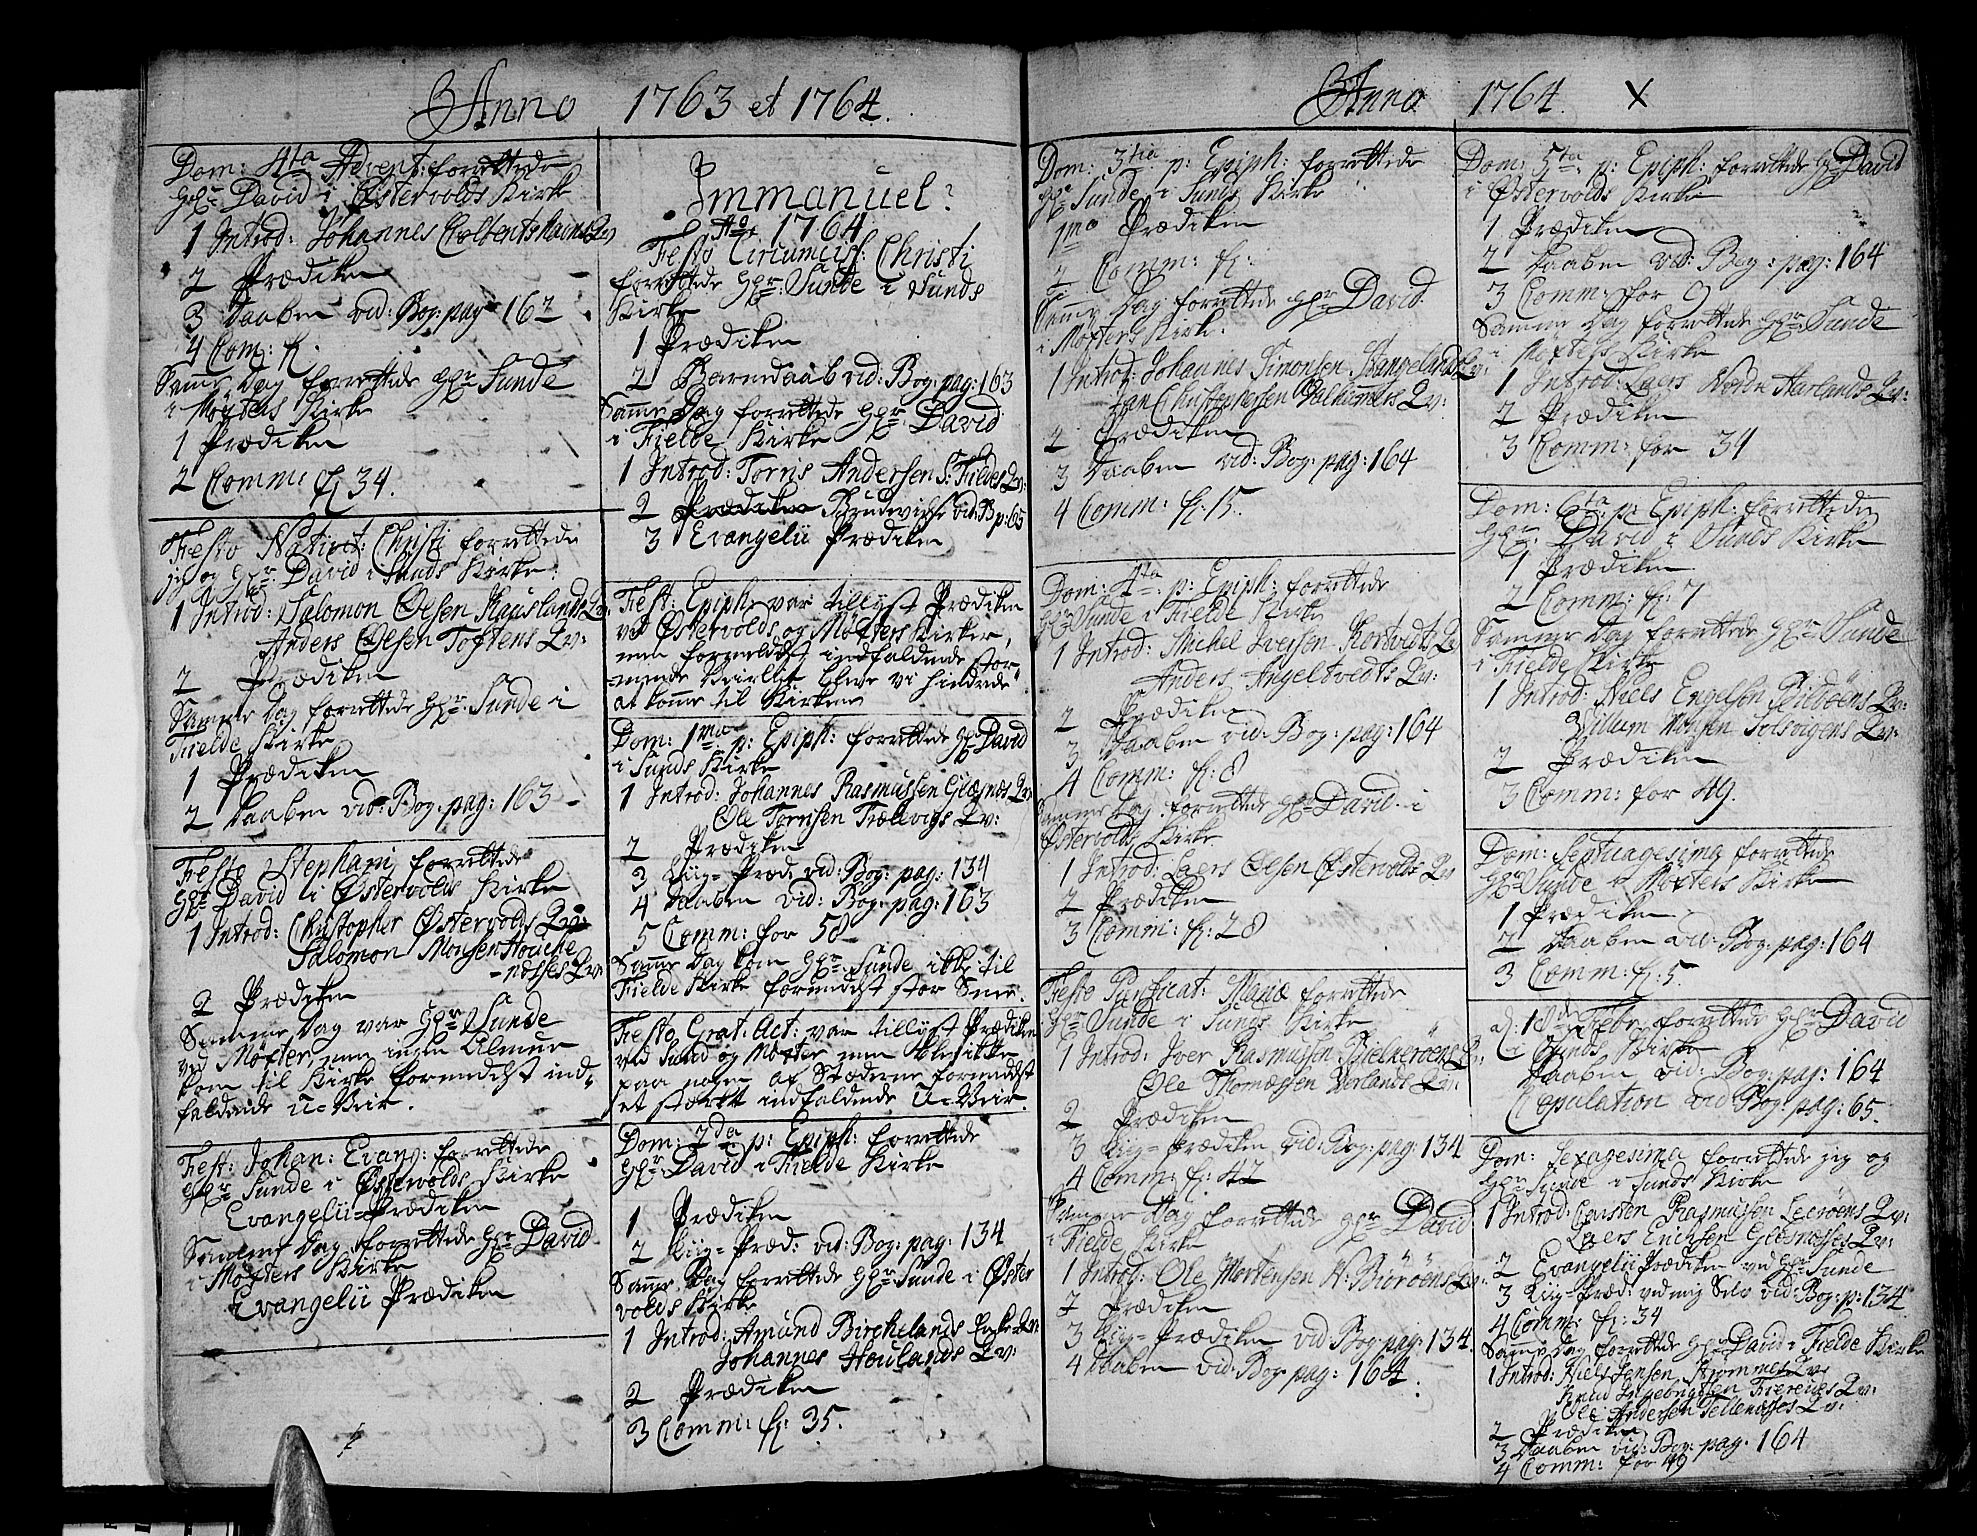 Anno 1763 et 1764.
Dom: 4ta Advent: forrettede
Hr. David i Østervolds Kirke
1 Introd: Johannes Qv
2 Prædiken
3 Daaben vid: Bog: pag 162
4 Com: f.
Samme Dag forrettede Hr Sunde
i Møxters Kirke
1 Prædiken
2 Comm: f: 34.
Festo Nativit: Christi forrettede
jeg og Hr. David i Sunds Kirke.
1 Introd: Salomon Olsen Hauslands Qv:
Anders Olsen Toftens Qv:
2 Prædiken
Samme Dag forrettede Hr. Sunde i
Fielde Kirke
1 Prædiken
2 Daaben vid: Bog: pag: 163
Festo Stephani forrettede
Hr. David i Østervolds Kirke
1 Introd: Christopher Østervolds Qv:
Salomon Monsen Houche
-næsses Qv:
2 Prædiken
Samme Dag var Hr Sunde
ved Møxter, men ingen Almue
kom til Kirke formedelst ind-
faldende U-Veir.
Fest: Johan: Evang: forrettede
Hr. Sunde i Østervolds Kirke
Evangelii-Prædiken
Samme Dag forrettede Hr. David
i Møxters Kirke
Evangelii Prædiken
Immanuel!
Ao 1764
Festo Circumcis: Christi
forrettede Hr: Sunde i Sunds
Kirke
1 Prædiken
2 Barnedaab vid: Bog: pag: 163
Samme Dag forrettede Hr. David
i Fielde Kirke
1 Introd: Torris Andersen S: Fieldes Qv:
2 Prædiken Brudvielse vid: B p: 65
3 Evangelii Prædiken
Fest: Epiph: var tillyst Prædiken
ved Østervolds og Møxters Kirker,
men formedelst indfaldende stor-
mende bleve vi hindrede
at komme til Kirkerne
Dom: 1ma p: Epiph: forrettede Hr David
i Sunds Kirke
1 Introd: Johannes Rasmussen Glæsnæs Qv:
Ole Tornsen Trællevigs Qv:
2 Prædiken
3 Liig-Præd: vid: Bog: pag: 134
4 Daaben vid: Bog: pag: 163
5 Comm: for 58
Samme Dag kom Hr. Sunde ikke til
Fielde Kirke formedelst stor Snee.
Festo Grat: Act: var tillyst Prædiken
ved Sund og Møxter men blev ikke
paa nogen af Stæderne formedelst
et stærkt indfaldende U-Veir.
Dom: 2da p: Epiph: forrettede
Hr David i Fielde Kirke
1 Prædiken
2 Liig-Præd: vid: Bog: pag: 134
Samme Dag forrettede Hr. Sunde i Øster
volds Kirke
1 Introd: Amund Birchelands Qv:
Johannes Houlands Qv:
2 Prædiken
3 Comm: f: 35.
Anno 1764. X
Dom: 3tia p: Epiph: forrettede
Hr. Sunde i Sunds Kirke
1mo Prædiken
2 Comm: f:
Samme Dag forrettede Hr David
i Møxters Kirke.
1 Introd: Johannes Simonsen Stangelands Qv:
Jan Christophersen Valhummers Qv:
2 Prædiken
3 Daaben vid: Bog: pag: 164
4 Comm: f: 15.
Dom: 4ta p: Epiph: forrettede
Hr Sunde i Fielde Kirke
1 Introd: Michel Iversen Kortvedts Qv
Anders Angeltvedts Qv:
2 Prædiken
3 Daaben vid: Bog: pag: 164
4 Comm: f: 8
Samme Dag forrettede Hr David i
Østervolds Kirke
1 Introd: Laers Olsen Østervolds Qv
2 Prædiken
3 Comm: f: 28
Festo Purificat: Mariæ forrettede
Hr. Sunde i Sunds Kirke
1 Introd: Iver Rasmussen Bielkerøens Qv:
Ole Thomæssen Vorlands Qv:
2 Prædiken
3 Liig-Prædiken vid: Bog: pag: 134
4 Comm: f: 42
Samme Dag forrettede Hr David
i Fielde Kirke
1 Introd: Ole Mortensen N: Biörøens Qv:
2 Prædiken
3 Liig-Prædiken vid Bog: pag: 134.
4 Daaben vid: Bog: pag: 164.
Dom: 5ta p: Epiph: forrettede Hr David
i Østervolds Kirke
1 Prædiken
2 Daaben vid: Bog: pag: 164
3 Comm: for 9
Samme Dag forrettede Hr. Sunde
i Møxters Kirke
1 Introd: Laers Nordre Havlands Qv:
2 Prædiken
3 Comm: for 34
Dom: 6ta p: Epiph: forrettede
Hr. David i Sunds Kirke
1 Prædiken
2 Comm: f: 7
Samme Dag forrettede Hr Sunde
i Fielde Kirke
1 Introd: Niels Engelsen Qv:
Willum Monsen Solsvigens Qv:
2 Prædiken
3 Comm: for 49.
Dom: Septuagesima forrettede
Hr Sunde i Møxters Kirke
1 Prædiken
2 Daaben vid: Bog: pag: 164
3 Comm: f: 5.
d: 18de Febr. forrettede Hr David
i Sunds Kirke
Daaben vid: Bog: pag: 164
Copulation vid Bog: pag: 65.
Dom: Sexagesima forrettede jeg og
Hr. Sunde i Sunds Kirke
1 Introd: Carsten Rasmussen Leerøens Qv:
Laers Erichsen Glesnæsses Qv:
2 Evangelii Prædiken ved Hr Sunde
3 Liig-Præd: ved mig Selv vid: Bog: p: 134
4 Comm: f: 34
Samme Dag forrettede Hr David i Fielde Kirke
1 Introd: Niels Jensen Strømmes Qv
Knud Ingebrigtsen Fiereides Qv:
Ole Andersen Tellenæsses Qv:
2 Prædiken
3 Daaben vid: Bog: pag. 164
4 Comm: for 49